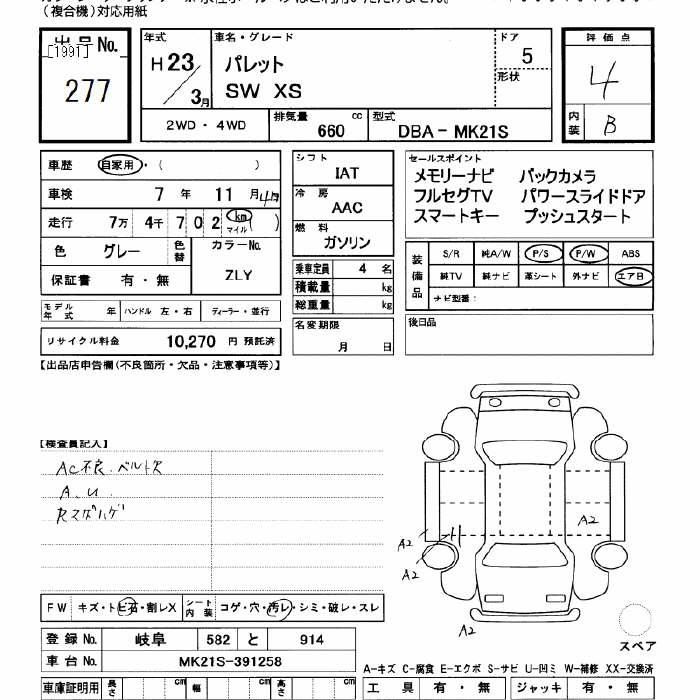 （複合機）対応用紙
出品No.
[1991]
277
年式
H 23/3月
車名・グレード
パレット
SW XS
ドア
5
形状
2WD・4WD
排気量 660 cc
型式 DBA-MK21S
評価点
4
内装 B
車歴 自家用・（ ）
車検 7 年 11 月
走行 7万 4千 7 0 2 km マイル ( )
色 グレー 色替
カラーNo.
ZLY
保証書 有・無
モデル年式 年 ハンドル 左・右 ディーラー・並行
リサイクル料金 10,270 円 預託済
シフト
IAT
冷房
AAC
燃料
ガソリン
乗車定員 4 名
積載量 kg
総重量 kg
名変期限
月 日
セールスポイント
メモリーナビ バックカメラ
フルセグTV パワースライドドア
スマートキー プッシュスタート
装備品
S/R 純A/W P/S P/W ABS
純TV 純ナビ 革シート 外ナビ エアB
ナビ型番：
後日品
【出品店申告欄(不良箇所・欠品・注意事項等)】
【検査員記入】
AC不良、ベルト欠
A、U
Rスダハゲ
A2
A2
A2
A2
スペア
FW キズ・トビ石・割レX
シート内装 コゲ・穴・汚レ・シミ・破レ・スレ
登録No. 岐阜 582 と 914
車台No. MK21S-391258
A-キズ C-腐食 E-エクボ S-サビ U-凹ミ W-補修 XX-交換済
車庫証明用 長さ cm 幅 cm 高さ cm
工具 有・無 ジャッキ 有・無